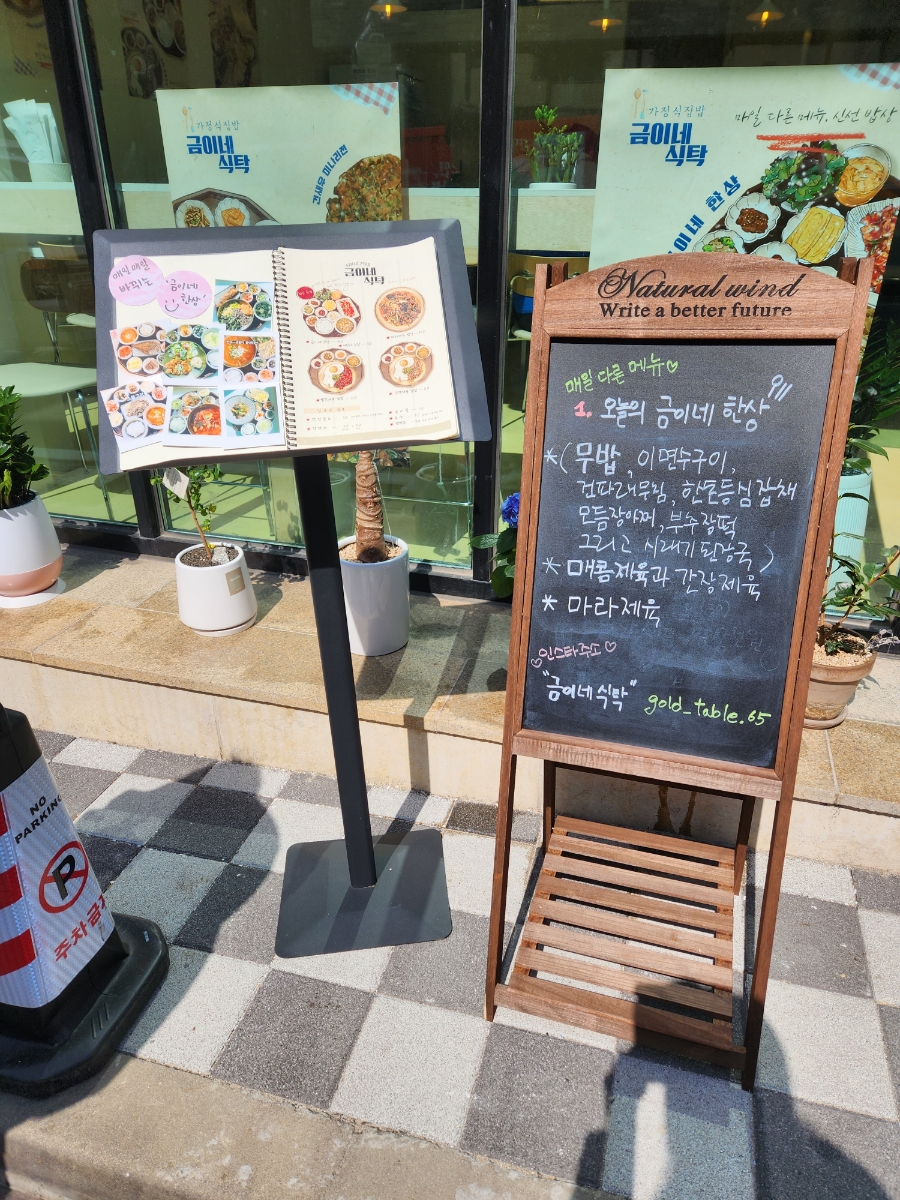 가정식집밥
금이네
식탁
건새우 미나리전
가정식집밥
금이네
식탁
매일 다른 메뉴, 신선 밥상
이네 한상
매일매일
바뀌는
금이네
한상
금이네
식탁
Natural wind
Write a better future
매일 다른 메뉴♡
1. 오늘의 금이네 한상
*(무밥, 이면수구이,
건파래무침, 한돈등심잡채
모듬장아찌, 부추장떡
그리고 시래기 된장국)
* 매콤제육과 간장제육
* 마라제육
♡인스타주소♡
"금이네 식탁" gold_table.65
NO
PARKING
P
주차금